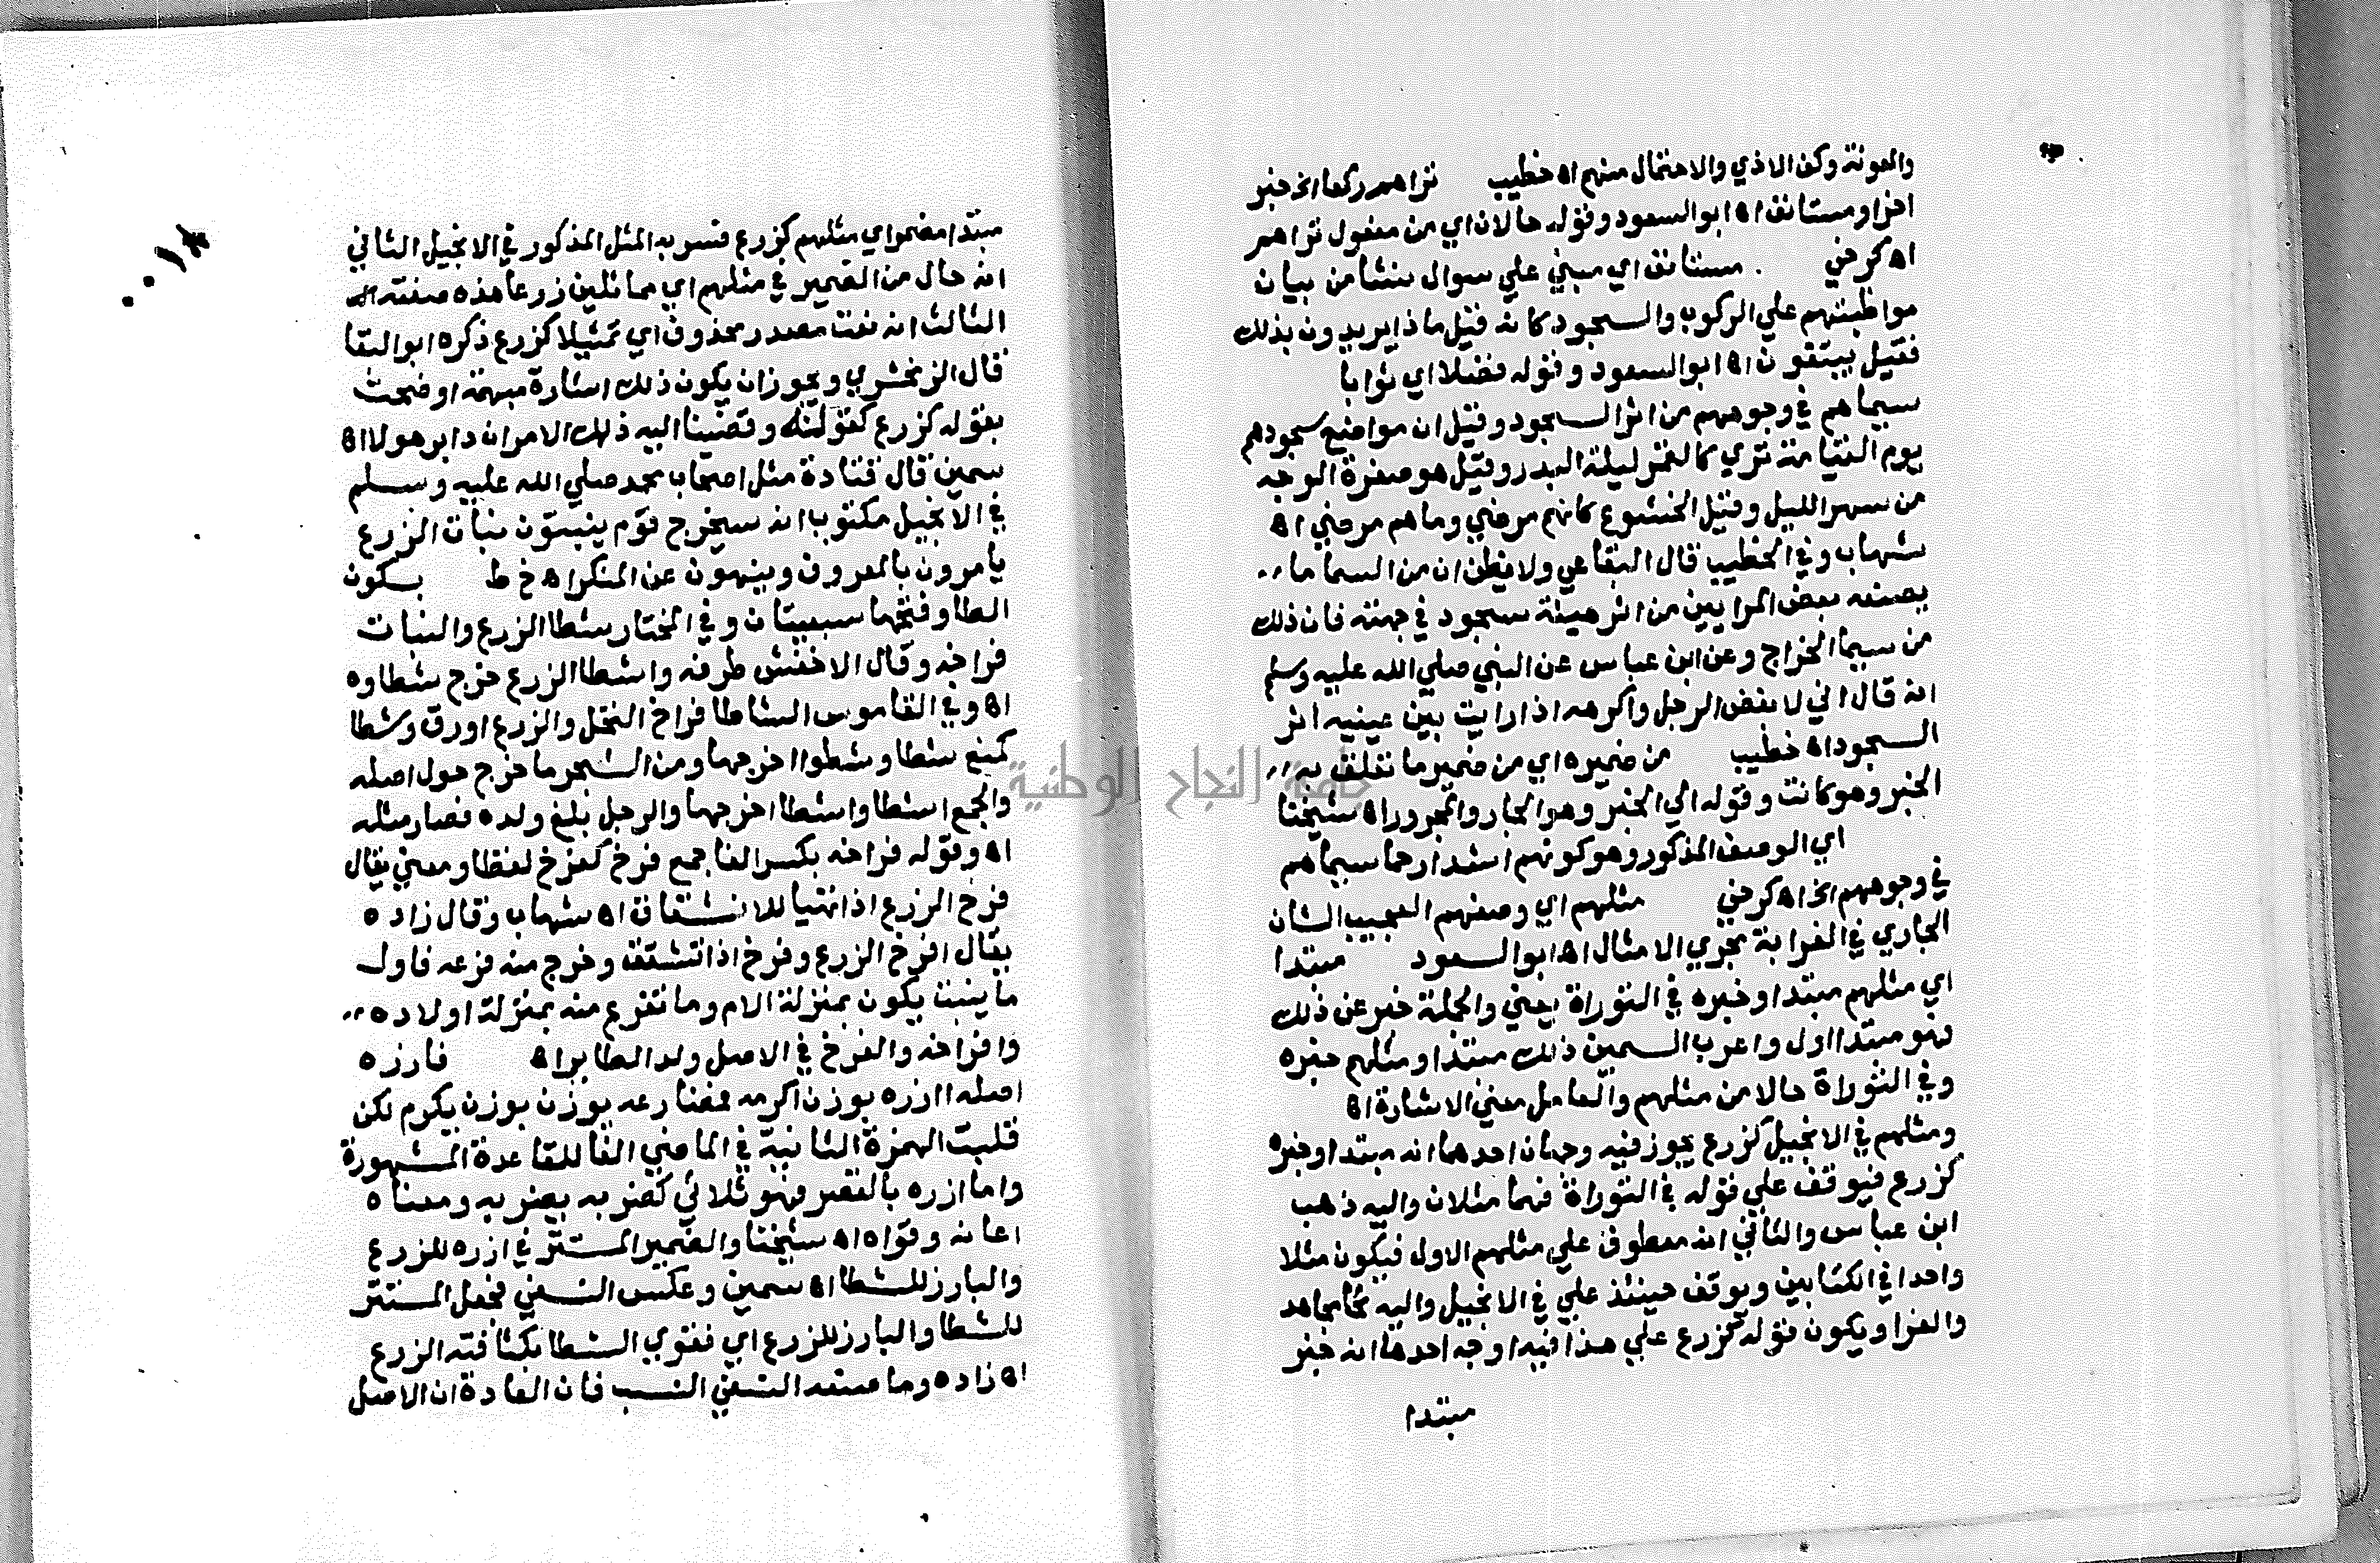 والمونة وكف الاذي والاحتمال منهم اه خطيب تراهم ركعا الخ خبر
اخر او مستانف اه ابو السعود وقوله حالان اي من مفعول تراهم
اه كرخي . مستانف اي مبني علي سوال نشا من بيان
مواظبتهم علي الركوب والسجود كانه قيل ماذا يريدون بذلك
فقيل يبتغون اه ابو السعود وقوله فضلا اي ثوابا
سيماهم في وجوههم من اثر السجود وقيل ان مواضع سجودهم
يوم القيامة تري كالقمر ليلة البدر وقيل هو صفرة الوجه
من سهر الليل وقيل الخشوع كانهم مرضي وما هم مرضي اه
شهاب وفي الخطيب قال البقاعي ولا يظن ان من السيما ما
يصنعه بعض المرايين من اثر هيئة سجود في جبهته فان ذلك
من سيما الخراج وعن ابن عباس عن النبي صلي الله عليه وسلم
انه قال اني لابغض الرجل واكرهه اذا رايت بين عينيه اثر
السجود اه خطيب من ضميره اي من ضمير ما تعلق به
الخبر وهو كانت وقوله الي الخبر وهو الجار والمجرور اه شيخنا
اي الوصف المذكور وهو كونهم اشدا رحما سيماهم
في وجوههم الخ اه كرخي مثلهم اي وصفهم العجيب الشان
الجاري في الغرابة مجري الامثال اه ابو السعود مبتدا
اي مثلهم مبتدا وخبره في التوراة يعني والجملة خبر عن ذلك
فهو مبتدا اول واعرب السمين ذلك مبتدا ومثلهم خبره
وفي التوراة حالا من مثلهم والعامل معني الاشارة اه
ومثلهم في الانجيل كزرع يجوز فيه وجهان احدهما انه مبتدا وخبره
كزرع فيوقف علي قوله في التوراة فهما مثلان واليه ذهب
ابن عباس والثاني انه معطوف علي مثلهم الاول فيكون مثلا
واحدا في الكتابين ويوقف حينئذ علي في الانجيل واليه نحا مجاهد
والفرا ويكون قوله كزرع علي هذا فيه اوجه احدها انه خبر
مبتدا
مبتدا مضمر اي مثلهم كزرع فسر به المثل المذكور في الانجيل الثاني
انه حال من الضمير في مثلهم اي مماثلين زرعا هذه صفته
الثالث انه نعت مصدر محذوف اي تمثيلا كزرع ذكره ابو البقا
قال الزمخشري ويجوز ان يكون ذلك اشارة مبهمة اوضحت
بقوله كزرع كقوله وقضينا اليه ذلك الامر ان دابر هولا اه
سمين قال قتادة مثل اصحاب محمد صلي الله عليه وسلم
في الانجيل مكتوب انه سيخرج قوم ينبتون نبات الزرع
يامرون بالمعروف وينهون عن المنكر اه خ ط بسكون
الطا وفتحها سبعيتان وفي المختار شطا الزرع والنبات
فراخه وقال الاخفش طرفه واشطا الزرع خرج شطاوه
اه وفي القاموس الشاطا فراخ النخل والزرع او رق وشطا
كمنع شطا وشطوا اخرجها ومن الشجر ما خرج حول اصله
والجمع اشطا واشطا اخرجها والرجل بلغ ولده فصار مثله
اه وقوله فراخه بكسر الفا جمع فرخ كفرخ لفظا ومعني يقال
فرخ الزرع اذا تهيا للانشقاق اه شهاب وقال زاده
يقال افرخ الزرع وفرخ اذا تشقق وخرج منه فرعه فاول
ما ينبت يكون بمنزلة الام وما تفرع منه بمنزلة اولاده
وافراخه والفرخ في الاصل ولد الطاير اه فازره
اصله اازره بوزن اكرمه فمضارعه يوزن بوزن يكوم لكن
قلبت الهمزة الثانية في الماضي الفا للقاعدة المشهورة
واما ازره بالقصر فهو ثلاثي كضربه يضربه ومعناه
اعانه وقواه اه شيخنا والضمير المستتر في ازره للزرع
والبارز للشطا اه سمين وعكس النسفي فجعل المستتر
للشطا والبارز للزرع اي فقوي الشطا بكثافته الزرع
اه زاده وما صنعه النسفي انسب فان العادة ان الاصل
جامعة النجاح الوطنية